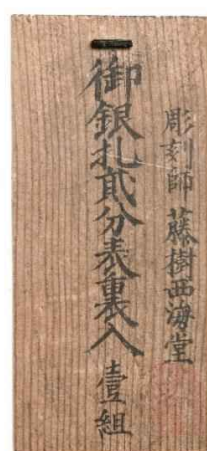 彫刻師 藤樹西海堂
御銀札貳分表裏入 壹組